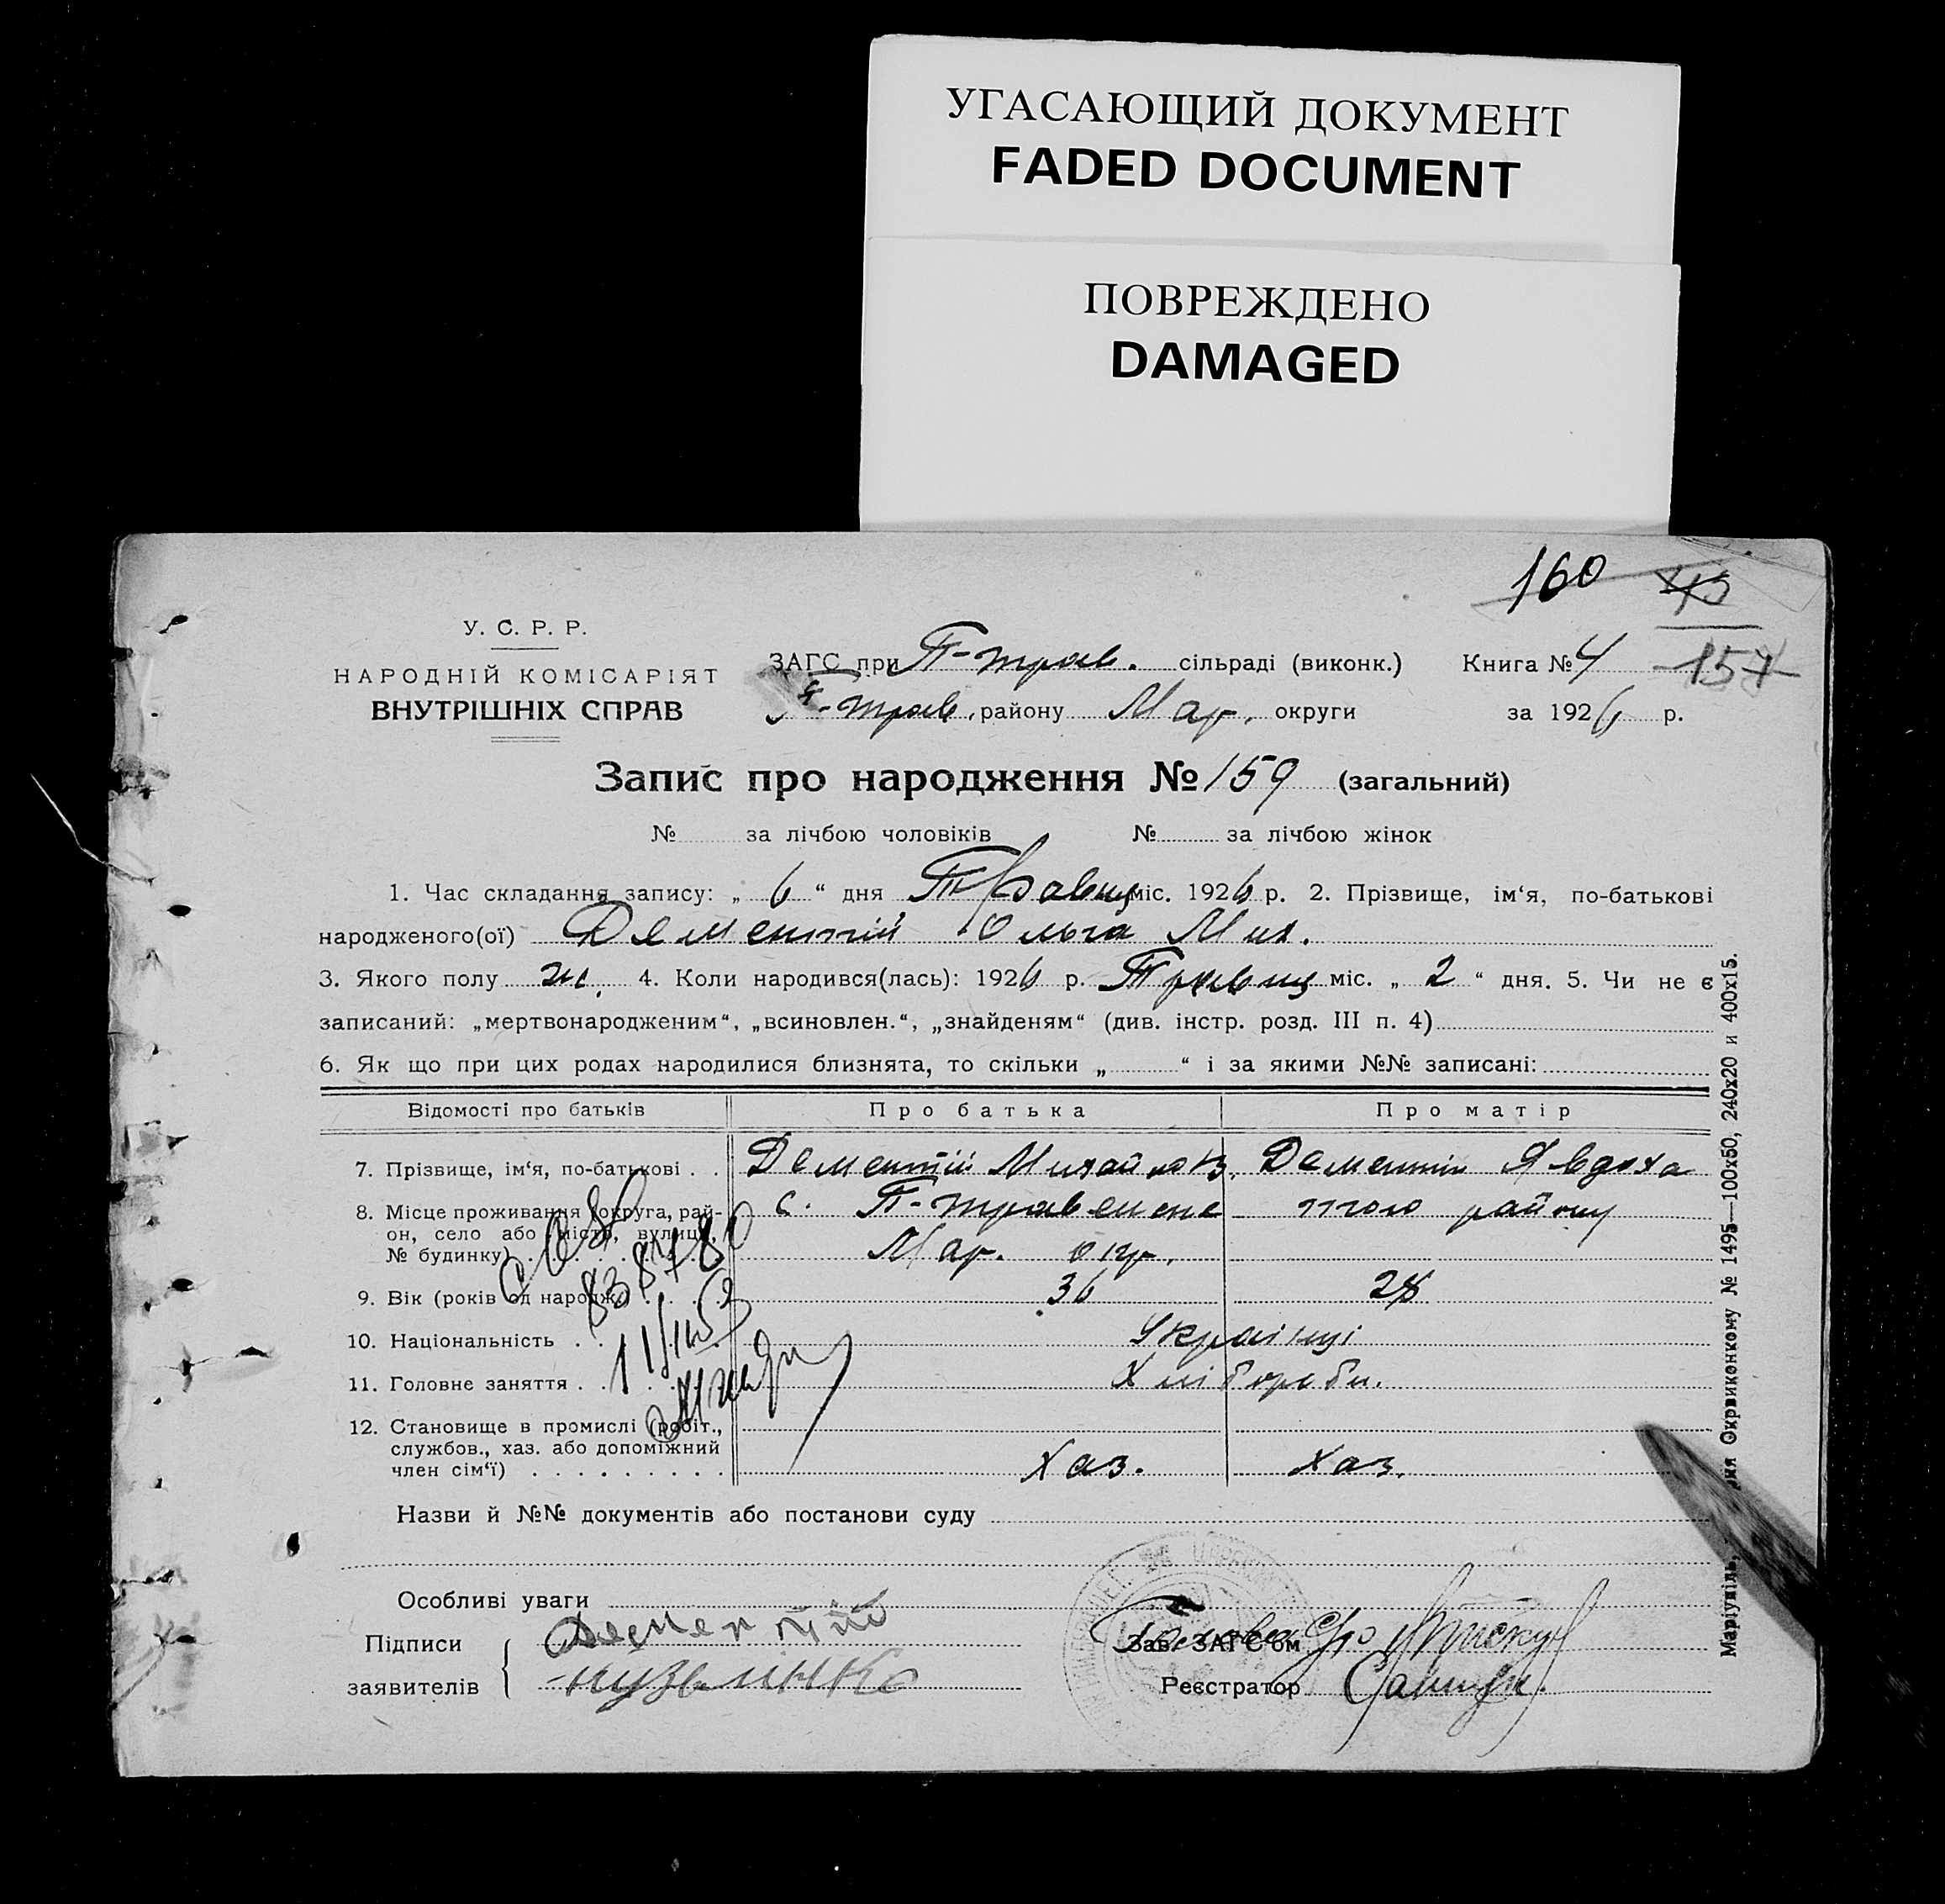 УГАСАЮЩИЙ ДОКУМЕНТ
FADED DOCUMENT
ПОВРЕЖДЕНО
DAMAGED
160 43
157
У. С. Р. Р.
НАРОДНІЙ КОМІСАРІЯТ
ВНУТРІШНІХ СПРАВ
ЗАГС при П-трав. сільраді (виконк.) Книга № 4
П-трав. району Мар. округи за 1926 р.
Запис про народження № 159 (загальний)
№ за лічбою чоловіків № за лічбою жінок
1. Час складання запису: „ 6 “ дня Травця міс. 1926 р. 2. Прізвище, ім‘я, по-батькові
народженого(ої) Дементій Ольга Мих.
3. Якого полу ж. 4. Коли народився(лась): 1926 р. Травця міс. „ 2 “ дня. 5. Чи не є
записаний: „мертвонародженим“, „всиновлен.“, „знайденям“ (див. інстр. розд. III п. 4)
6. Як що при цих родах народилися близнята, то скільки „ “ і за якими №№ записані:
Відомості про батьків Про батька Про матір
7. Прізвище, ім‘я, по-батькові . . Дементій Михайло Дементій Явдоха
8. Місце проживання (округа, рай- с. П-травенене того району
он, село або місто, вулиця,
№ будинку) Мар. окр.
9. Вік (років од народж.) 36 28
10. Національність Українці
11. Головне заняття Хлібороби.
12. Становище в промислі (робіт.,
службов., хаз. або допоміжний
член сім‘ї) Хаз. Хаз.
Назви й №№ документів або постанови суду
Особливі уваги
Підписи Дементій Зав. ЗАГС‘ом Голова
заявителів Реєстратор
Маріупіль, Окрвиконкому № 1495—100x50, 240x20 и 400x15.